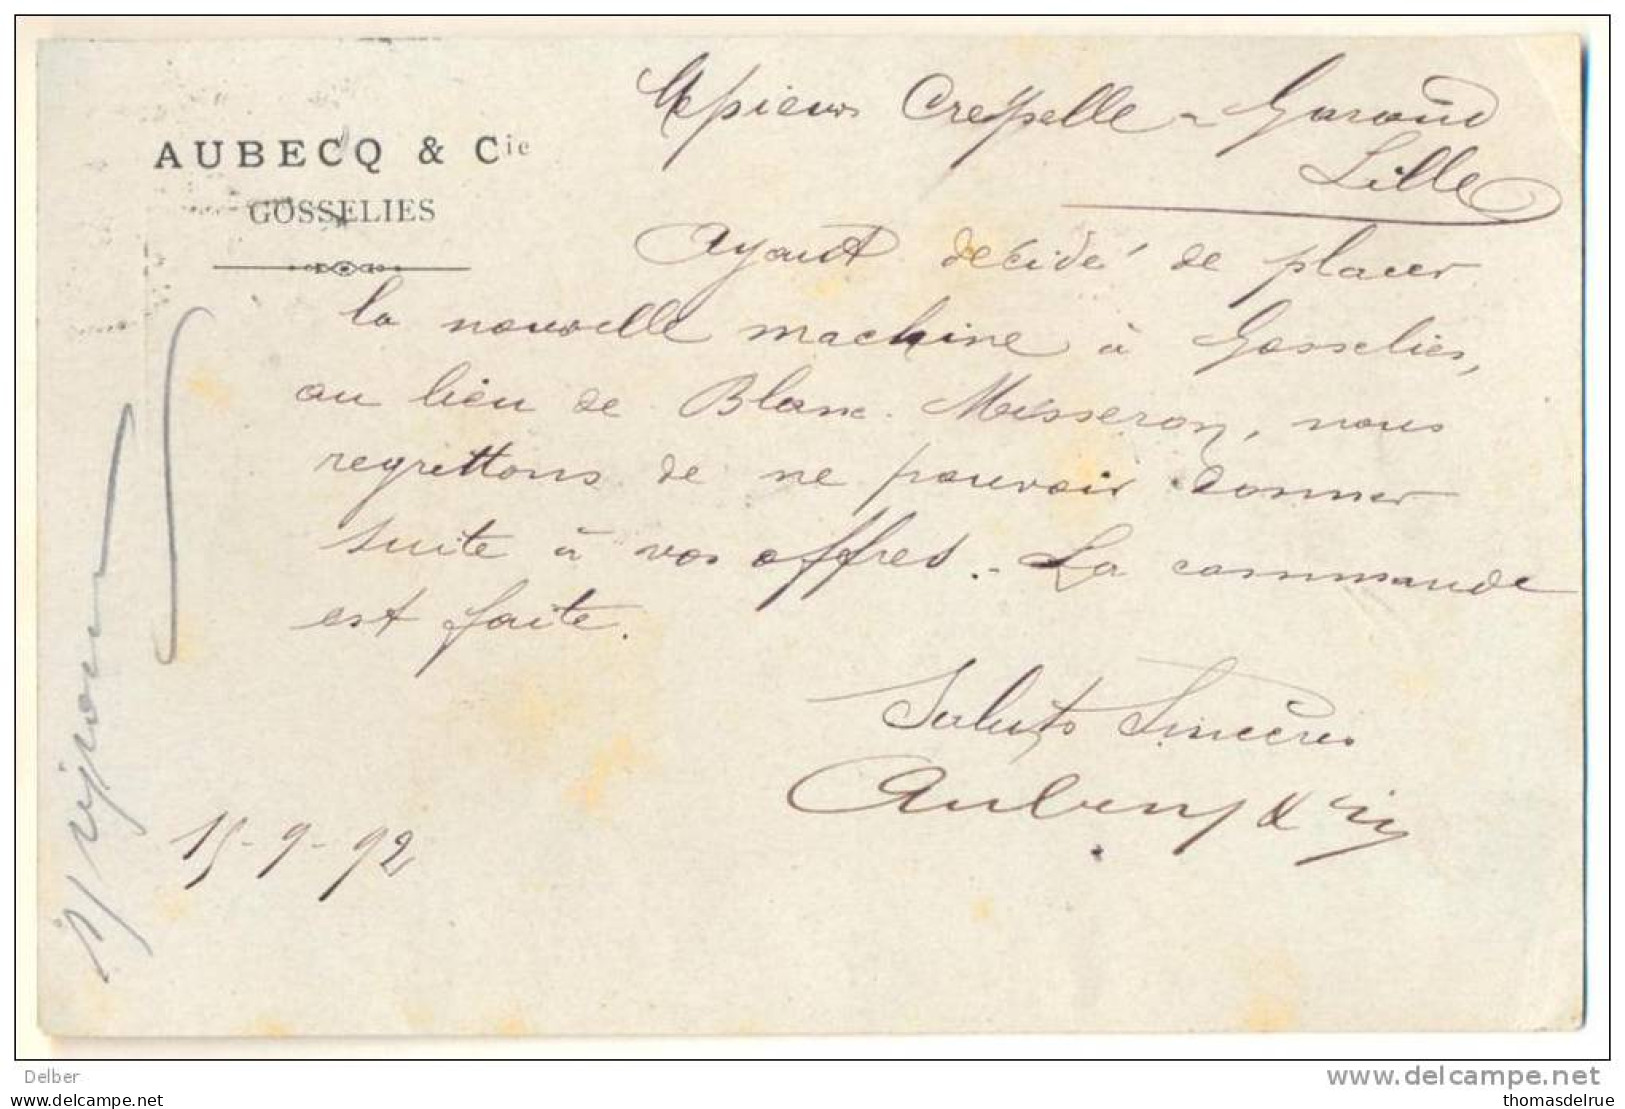 AUBECQ & Cie
GOSSELIES
Messieurs Crespelle - Garand
Lille
Ayant décidé de placer
la nouvelle machine à Gosselies,
au lieu de Blanc-Misseron, nous
regrettons de ne pouvoir donner
suite à vos offres. - La commande
est faite.
Saluts Sincères
Aubecq & Cie
15-9-92
Delber
www.delcampe.net
thomasdelrue